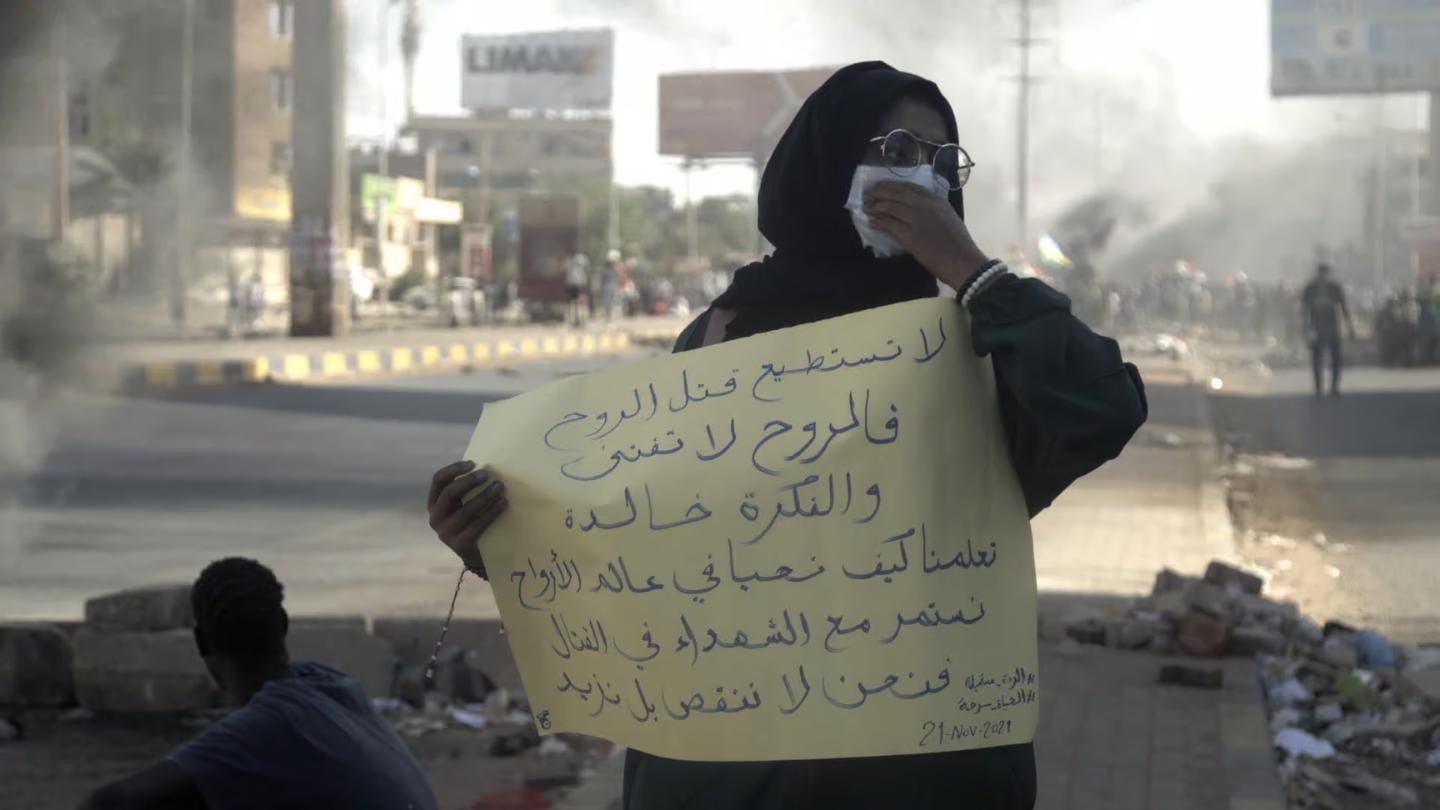 LIMAX
لا تستطيع قتل الروح
فالروح لا تفنى
والفكرة خالدة
تعلمنا كيف نحيا في عالم الأرواح
نستمر مع الشهداء في القتال
فنحن لا ننقص بل نزيد
#الردة_مستحيلة
21-Nov-2021